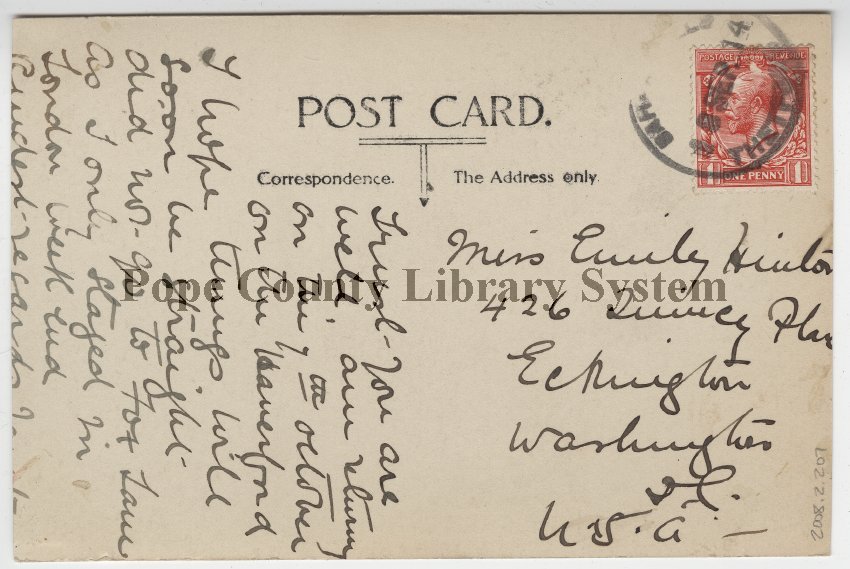 POST CARD.
Correspondence.
The Address only.
POSTAGE REVENUE
1 ONE PENNY 1
14
Trust you are
well am returning
on the 7th october
on the Haverford
I hope things will
soon be straight
did not go to Fox Lane
as I only stayed in
London week end
Kindest regards
Miss Emily Hinton
426 Quincy Plac
Eckington
Washington
D.C.
U.S.A. —
Pope County Library System
2008.2.207